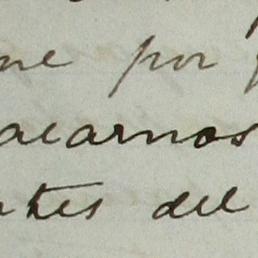 me por
acarnos
ntes del